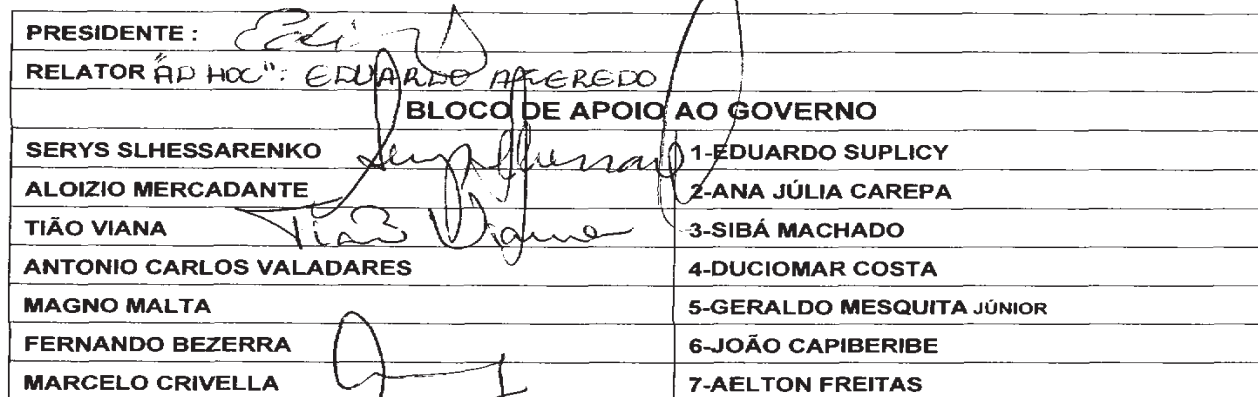 PRESIDENTE :
RELATOR "AD HOC": EDUARDO AZEREDO
BLOCO DE APOIO AO GOVERNO
SERYS SLHESSARENKO 1-EDUARDO SUPLICY
ALOIZIO MERCADANTE 2-ANA JÚLIA CAREPA
TIÃO VIANA Tião Viana 3-SIBÁ MACHADO
ANTONIO CARLOS VALADARES 4-DUCIOMAR COSTA
MAGNO MALTA 5-GERALDO MESQUITA JÚNIOR
FERNANDO BEZERRA 6-JOÃO CAPIBERIBE
MARCELO CRIVELLA 7-AELTON FREITAS